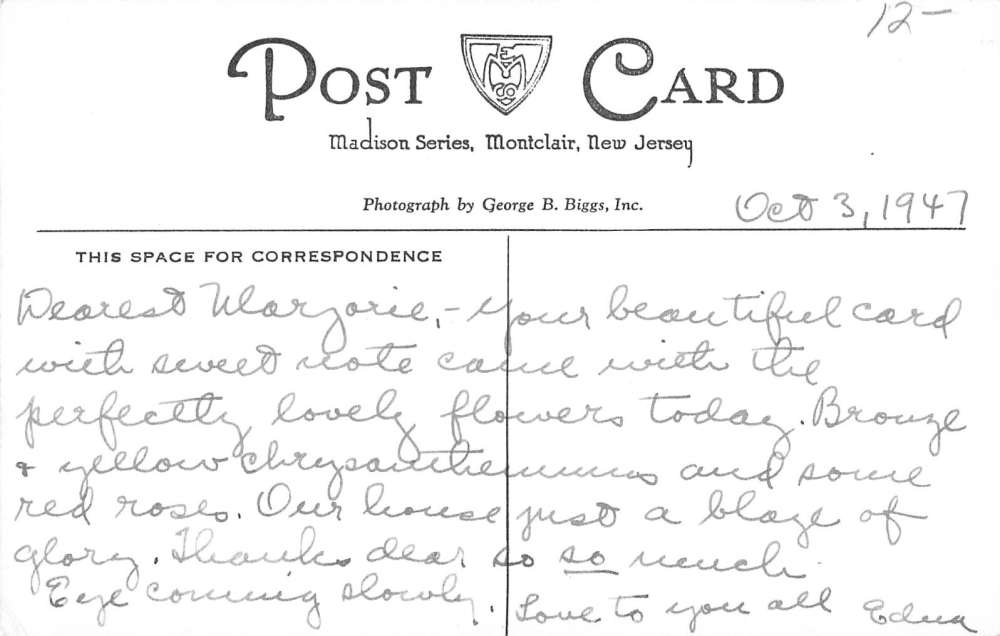 12-
POST CARD
Madison Series, Montclair, New Jersey
Photograph by George B. Biggs, Inc.
Oct 3, 1947
THIS SPACE FOR CORRESPONDENCE
Dearest Marjorie, - your beautiful card
with sweet note came with the
perfectly lovely flowers today. Bronze
& yellow chrysanthemums and some
red roses. Our house just a blaze of
glory. Thanks dear so so much
Eye coming slowly. Love to you all Edna